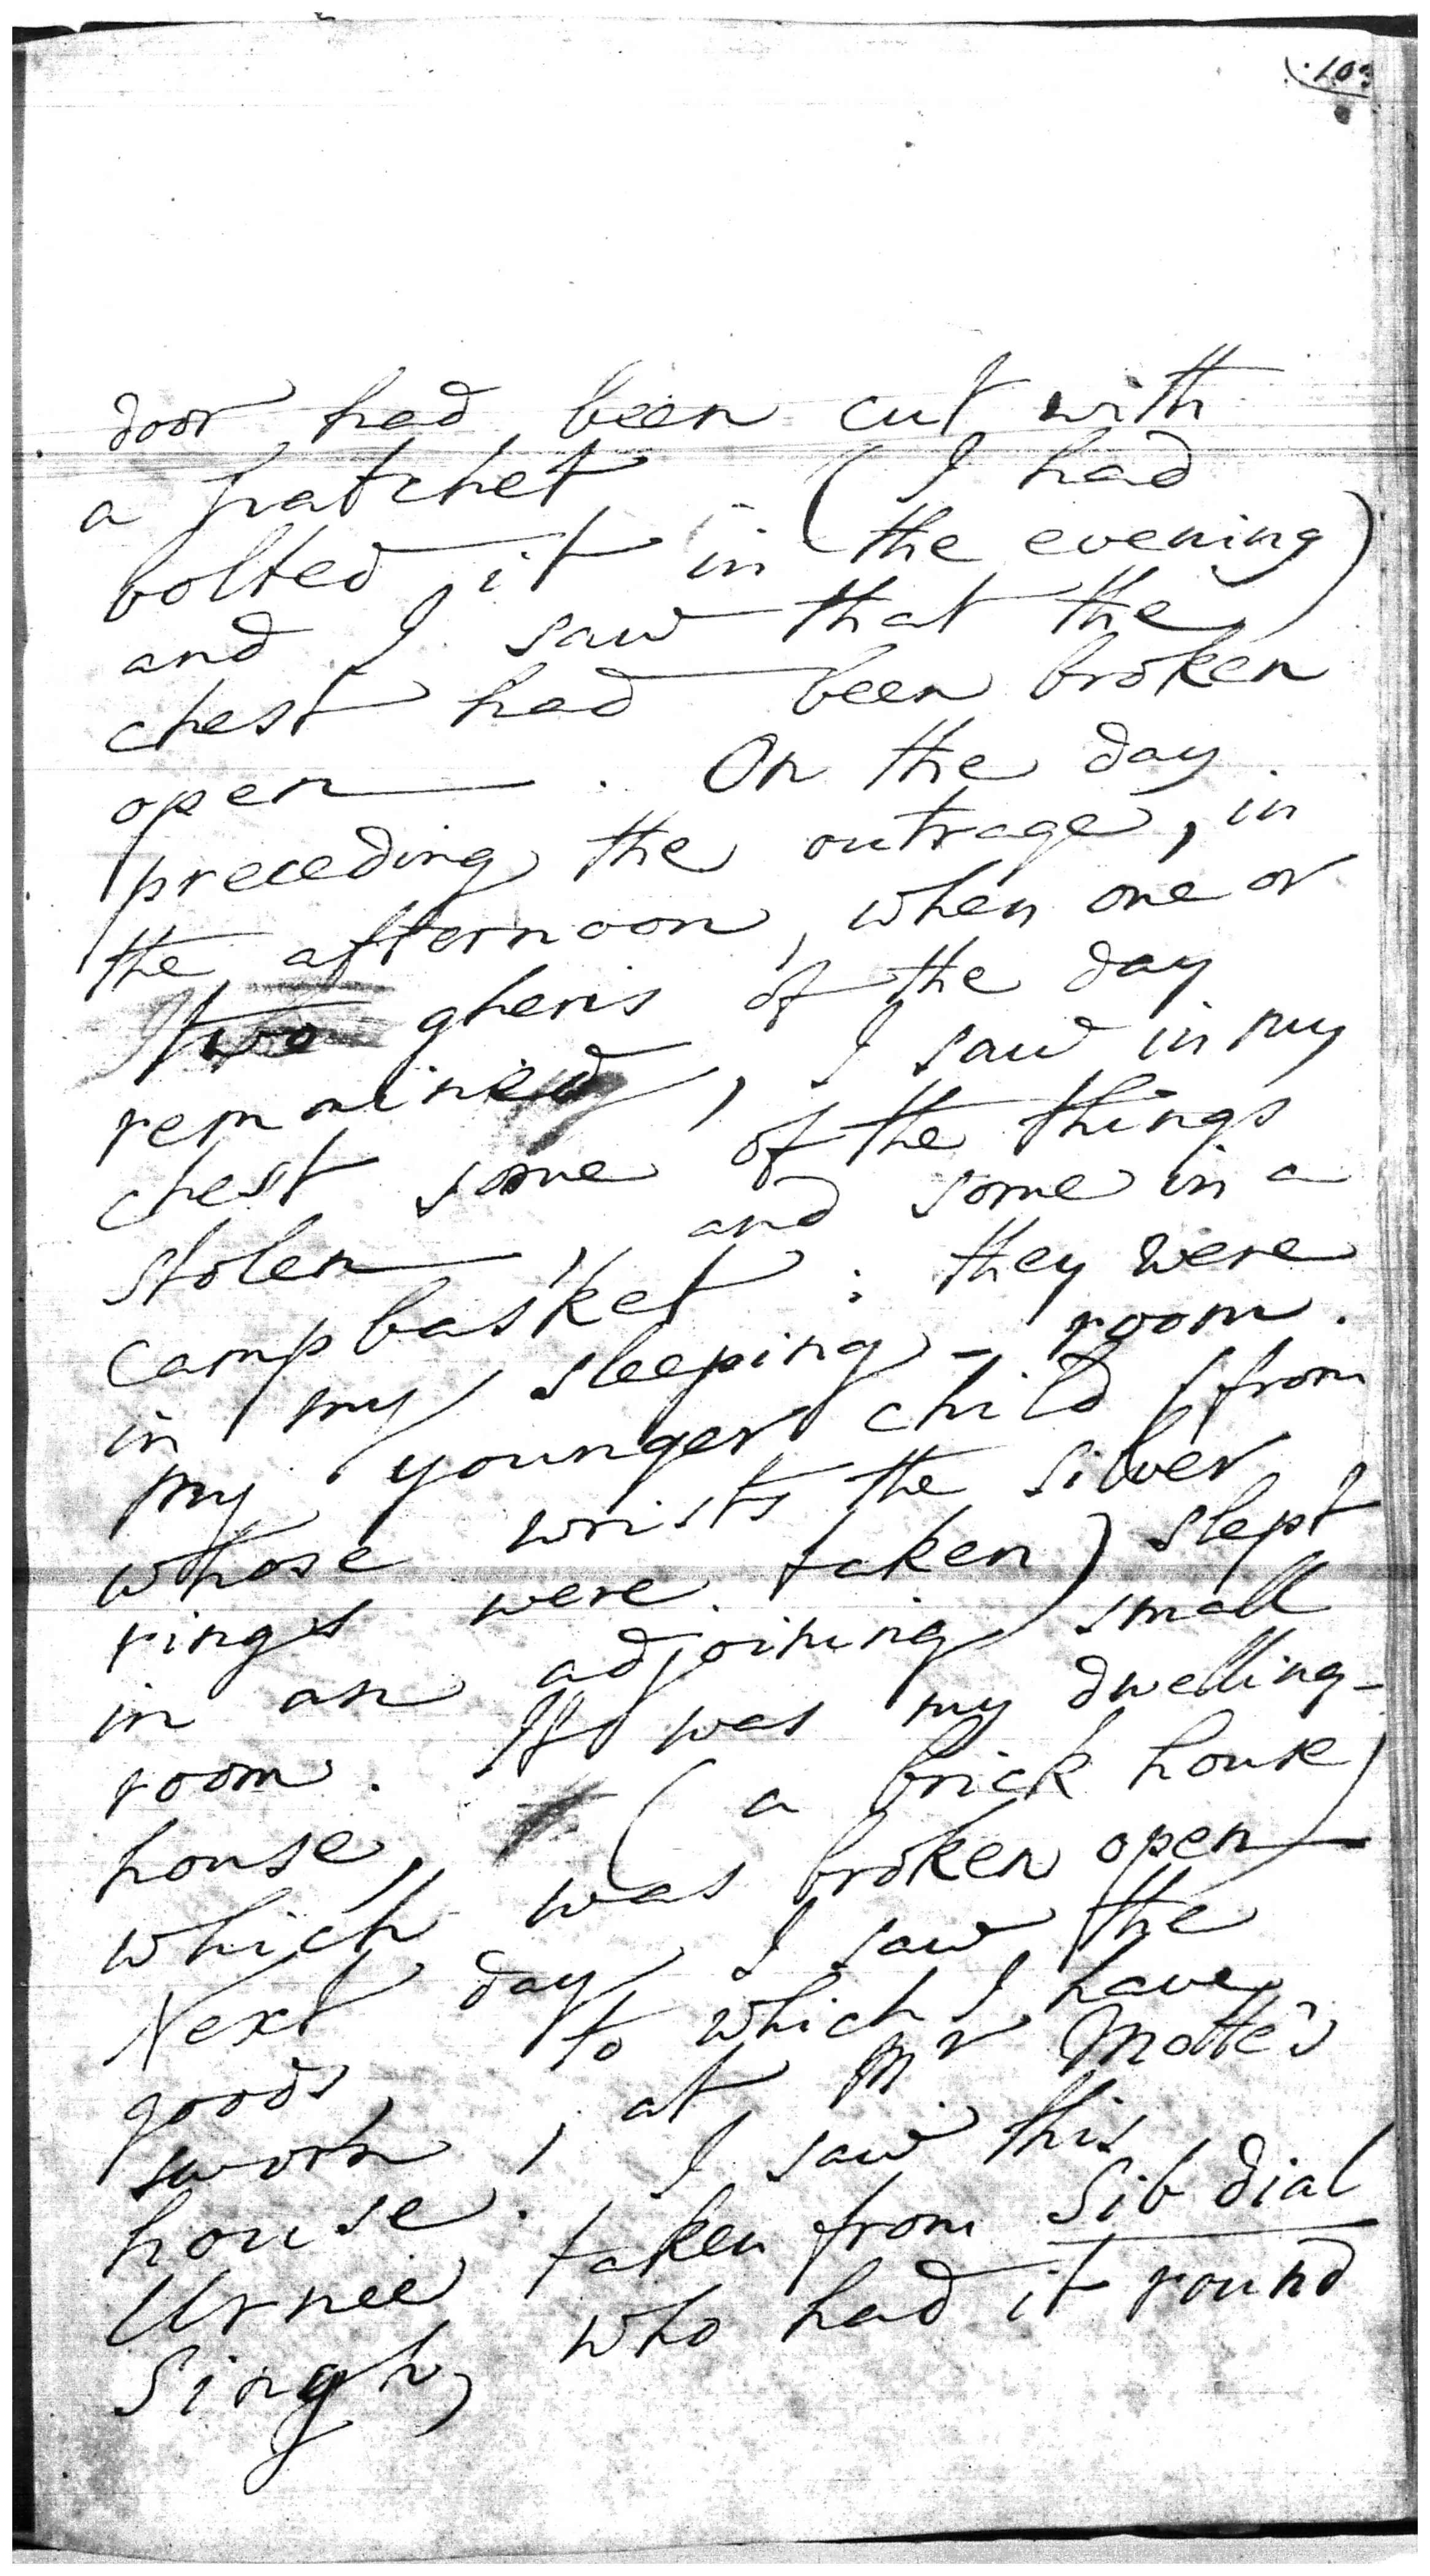 103
door had been cut with
a hatchet (I had
bolted it in the evening)
and I saw that the
chest had been broken
open. On the day
preceding the outrage, in
the afternoon, when one or
two gheris of the day
remained, I saw in my
chest some of the things
stolen, and some in a
camp basket: they were
in my sleeping-room.
my younger child (from
whose wrists the silver
rings were taken) slept
in an adjoining small
room. It was my dwelling-
house, (a brick house)
which was broken open
Next day I saw the
goods, to which I have
sworn, at Mr Motte's
house. I saw this
Urnee taken from Sib dial
Singh, who had it round